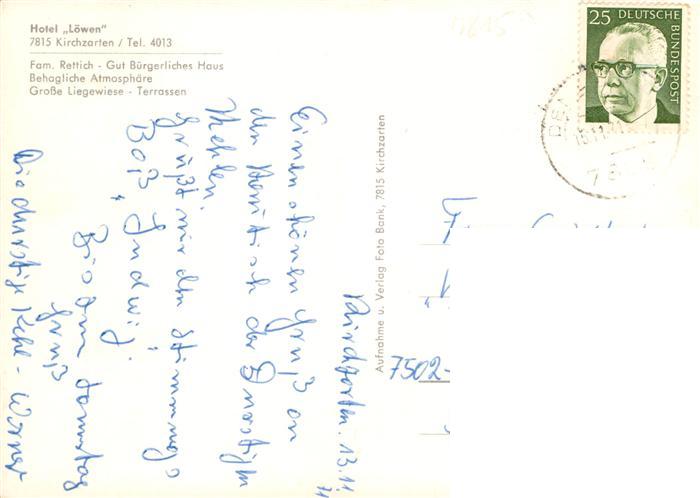 Hotel „Löwen"
7815 Kirchzarten / Tel. 4013
Fam. Rettich - Gut Bürgerliches Haus
Behagliche Atmosphäre
Große Liegewiese - Terrassen
25 DEUTSCHE
BUNDESPOST
Aufnahme u. Verlag Foto Bank, 7815 Kirchzarten
Kirchzarten. 13.11.
71
Einen schönen Gruß an
den der durstigen
Kehlen.
Grüßt mir den Stimmungs
Boß Ludwig.
Bis dann
Gruß
Die durstige Kehl - Werner
7502-